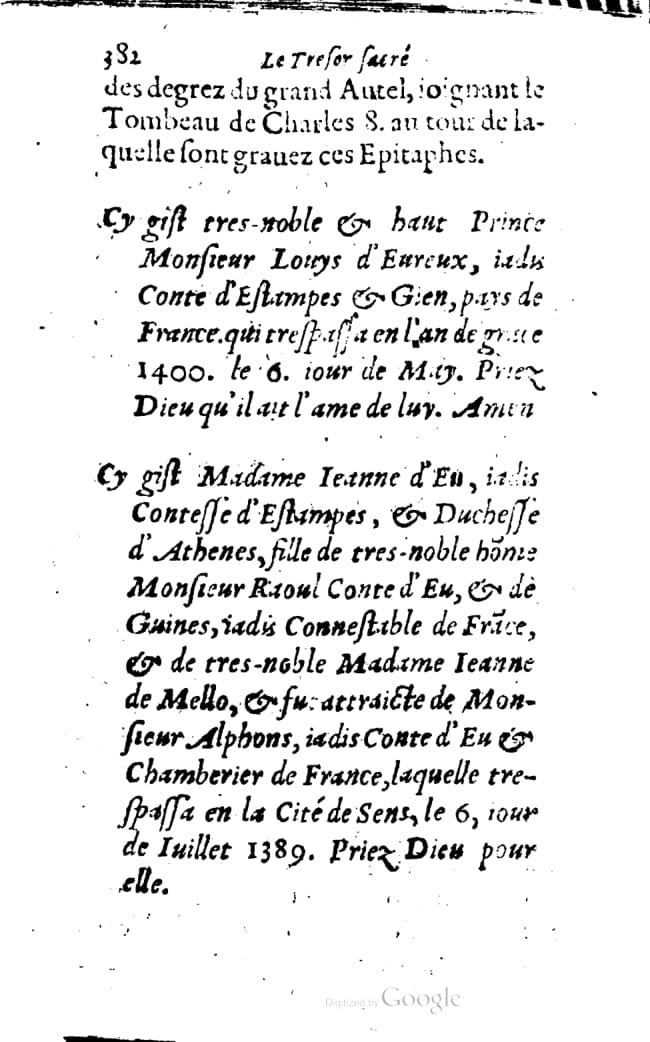 382 Le Treſor ſacré
des degrez du grand Autel, ioignant le
Tombeau de Charles 8. au tour de la-
quelle ſont grauez ces Epitaphes.
Cy giſt tres-noble & haut Prince
Monſieur Louys d'Eureux, iadis
Conte d'Eſtampes & Gien, pays de
France. qui treſpaſſa en l'an de grace
1400. le 6. iour de May. Priez
Dieu qu'il ait l'ame de luy. Amen
Cy giſt Madame Ieanne d'Eu, iadis
Conteſſe d'Eſtampes, & Ducheſſe
d'Athenes, fille de tres-noble hōme
Monſieur Raoul Conte d'Eu, & de
Guines, iadis Conneſtable de Frāce,
& de tres-noble Madame Ieanne
de Mello, & fut attraicte de Mon-
ſieur Alphons, iadis Conte d'Eu &
Chamberier de France, laquelle tre-
ſpaſſa en la Cité de Sens, le 6, iour
de Iuillet 1389. Priez Dieu pour
elle.
Digitized by Google